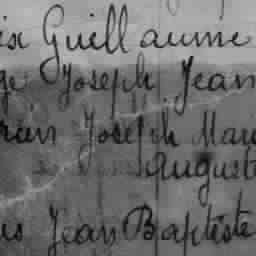 Guillaume
Joseph Jean
Joseph Mau
Auguste
Jean Baptiste